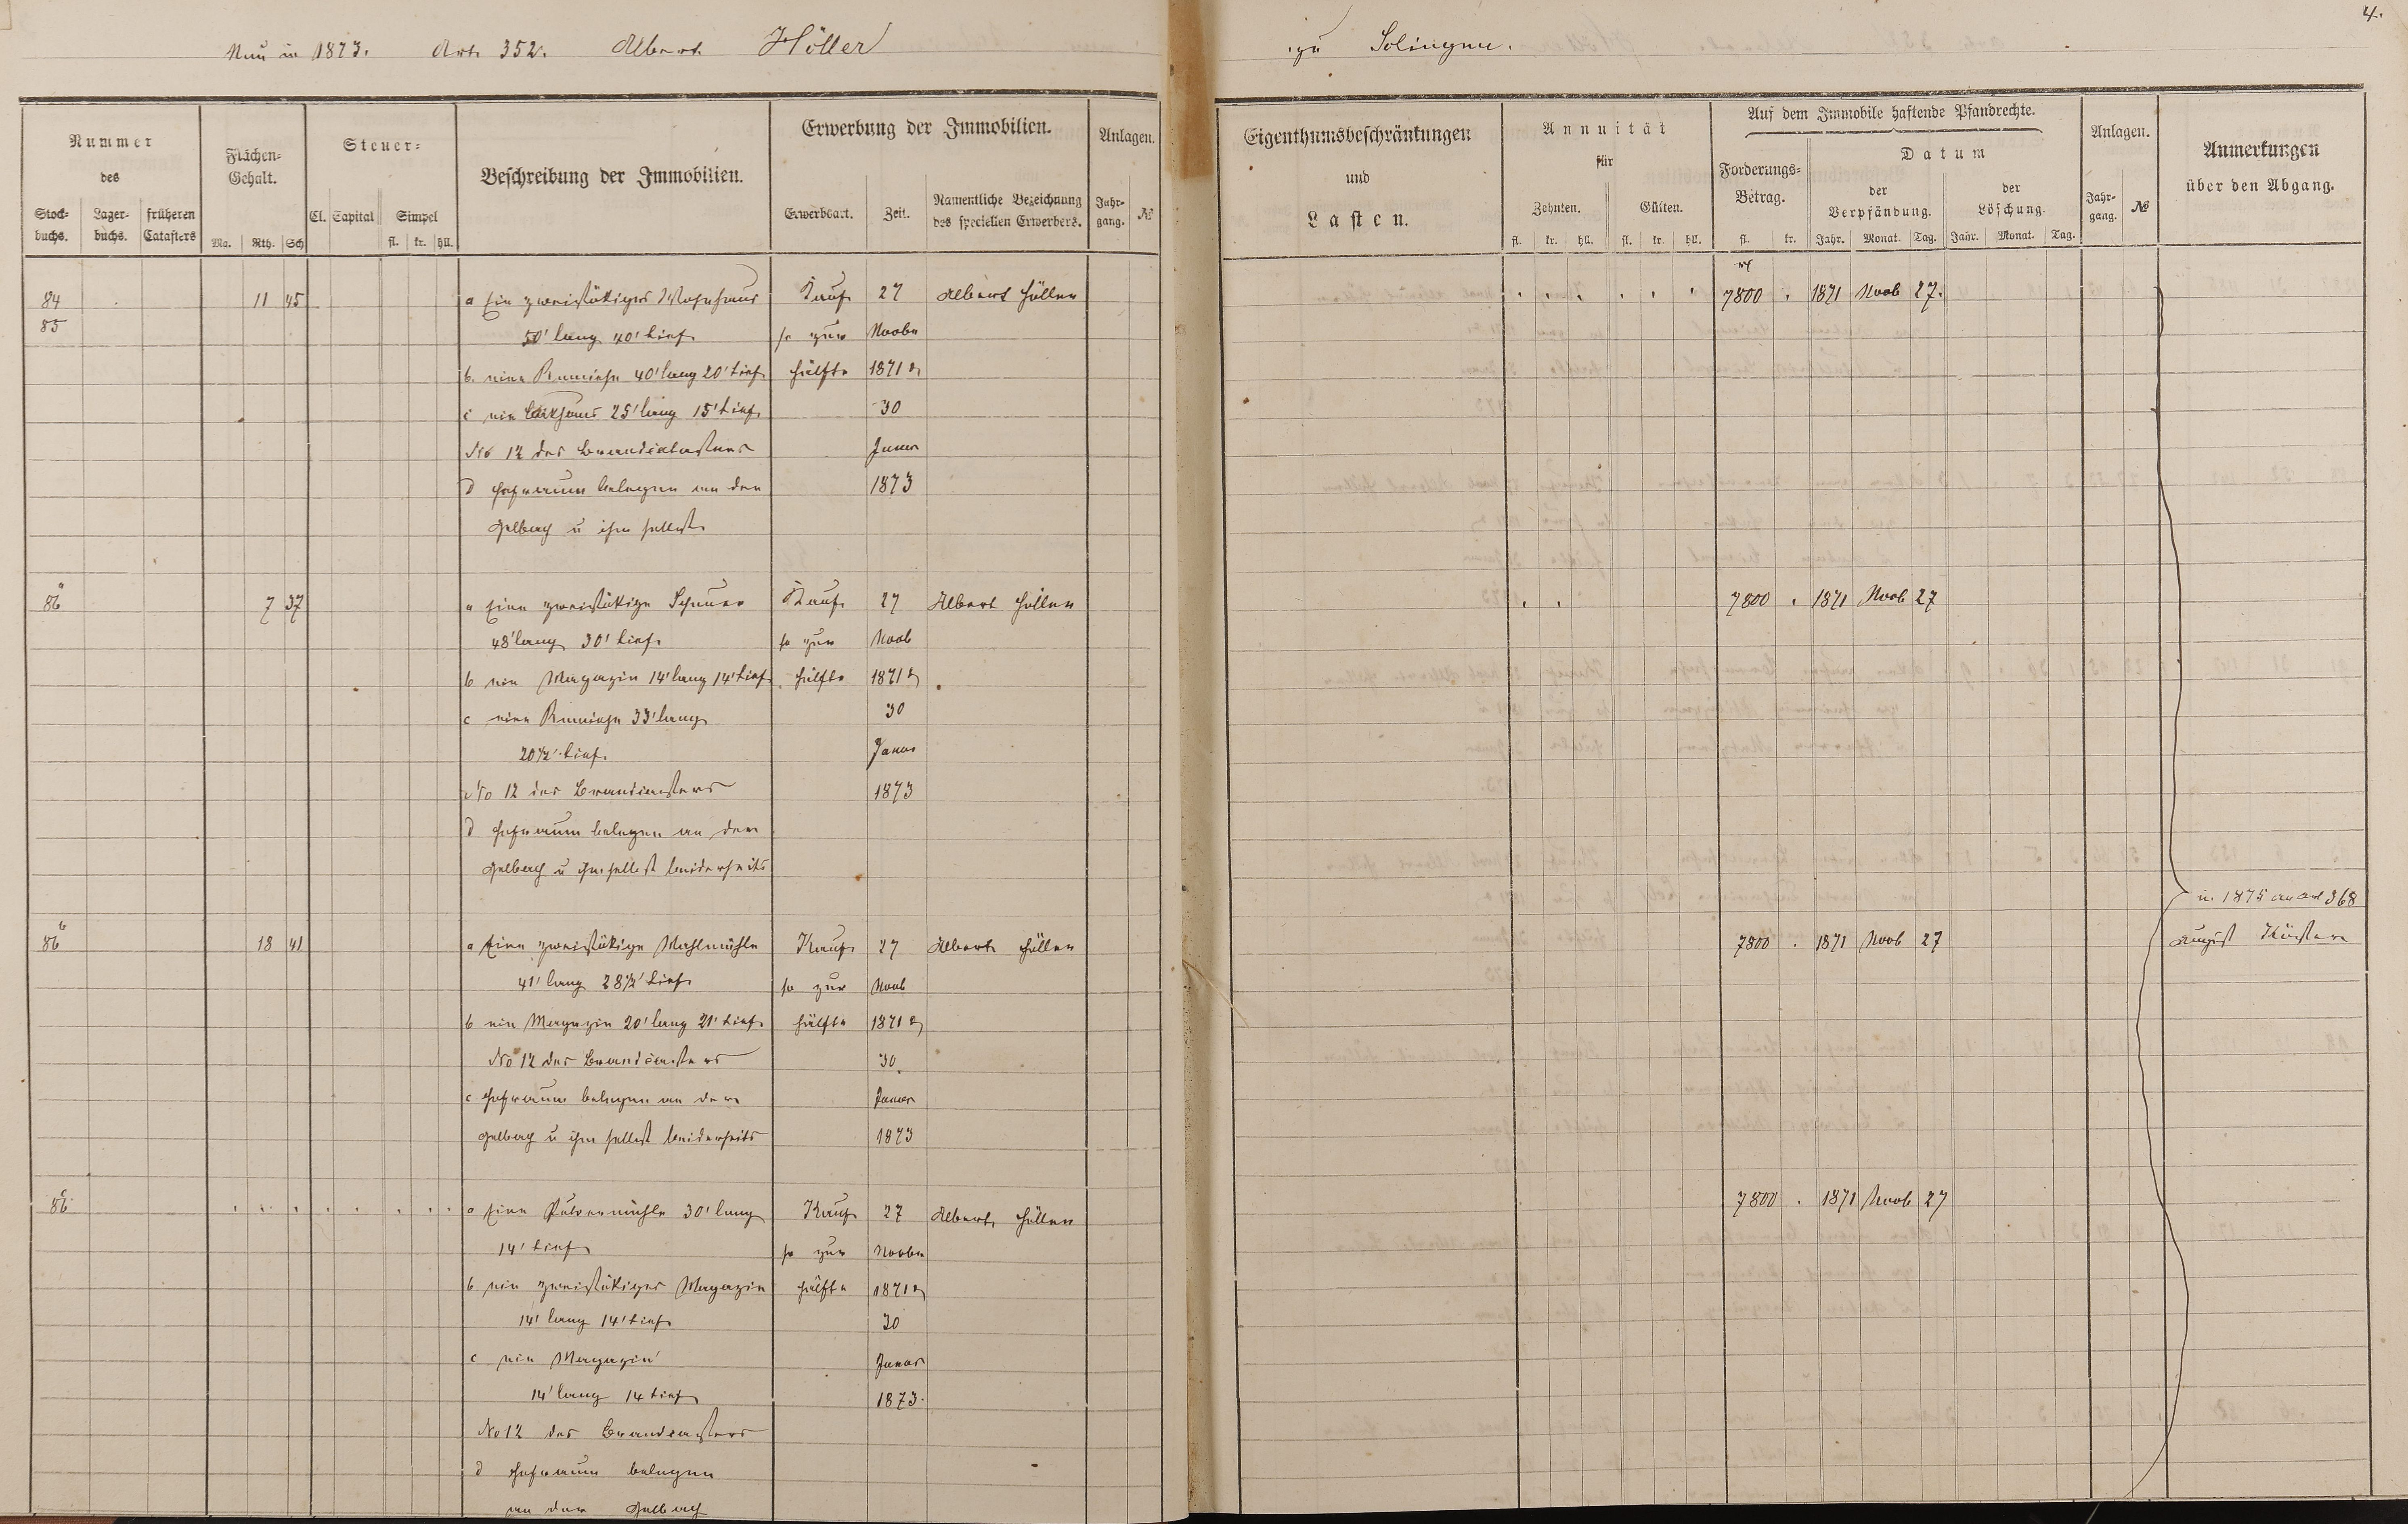 Neu in 1873. Art. 352. Albert Höller zu Solingen.
4.
Nummer des
Stock-buchs. Lager-buchs. früheren Catasters
Flächen-Gehalt.
Mg. Rth. Sch
Steuer-
Cl. Capital Simpel
fl. kr. hll.
Beschreibung der Immobilien.
Erwerbung der Immobilien.
Erwerbsart. Zeit. Namentliche Bezeichnung des speciellen Erwerbers.
Anlagen.
Jahr-gang. №
Eigenthumsbeschränkungen und Lasten.
Annuität für
Zehnten. Gülten.
fl. kr. hll. fl. kr. hll.
Auf dem Immobile haftende Pfandrechte.
Forderungs-Betrag.
fl. kr.
Datum
der Verpfändung. der Löschung.
Jahr. Monat. Tag. Jahr. Monat. Tag.
Anlagen.
Jahr-gang. №
Anmerkungen über den Abgang.
84 11 45 a Ein zweistökiges Wohnhaus Kauf 27 Albert Höller 7800 1871 Novb 27.
85 50' lang 40' tief so zur Novbr
b. eine Remiese 40' lang 20' tief Hälfte 1871 &
c ein Backhaus 25' lang 15' tief 30
No 12 des Brandcatasters Januar
d Hofraum belegen an der 1873
Gelbach u ihm selbst
86 a 7 37 a Eine zweistökige Scheuer Kauf 27 Albert Höller 7800 1871 Novb 27
48' lang 30' tief so zur Novb
b ein Magazin 14' lang 14' tief Hälfte 1871 &
c eine Remiese 33' lang 30
20 1/2' tief. Januar
No 12 des Brandcasters 1873
d Hofraum belegen an der
Gelbach u ihm selbst beiderseits
in 1875 an Art 368
86 b 18 41 a Eine zweistökige Mahlmühle Kauf 27 Albert Höller 7800 1871 Novb 27 August Küster
41' lang 28 1/2' tief so zur Novb
b ein Magazin 20' lang 21' tief Hälfte 1871 &
No 12 des Brandcasters 30
c Hofraum belegen an der Januar
Gelbach u ihm selbst beiderseits 1873
86 c a Eine Pulvermühle 30' lang Kauf 27 Albert Höller 7800 1871 Novb 27
14' tief so zur Novbr
b ein zweistökiges Magazin Hälfte 1871 &
14' lang 14' tief 30
c ein Magazin Januar
14' lang 14 tief 1873.
No 12 des Brandcasters
d Hofraum belegen
an der Gelbach